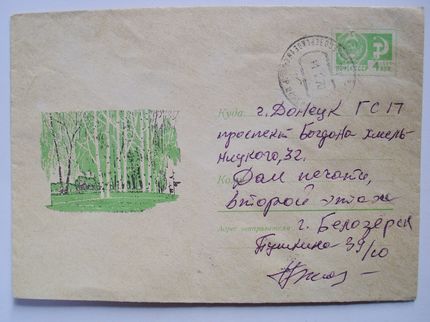 ПОЧТА СССР 4
Куда
г. Донецк ГСП
проспект Богдана Хмель-
ницкого, 32.
Дом печати,
второй этаж
Адрес отправителя
г. Белозёрск
Пушкина 39/10